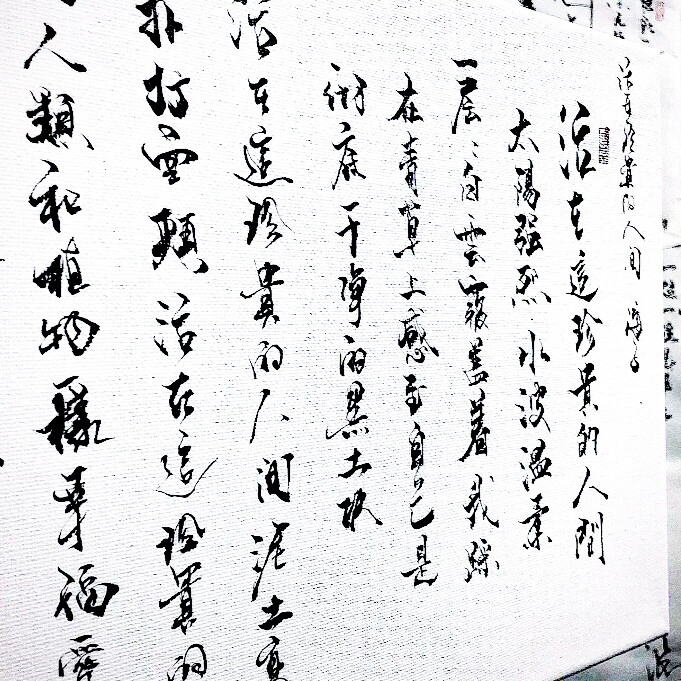 活在珍貴的人间 海子
活在這珍貴的人間
太陽强烈水波温柔
一层々白雲覆蓋着我踩
在青草上感到自己是
彻底干净的黑土块
活在這珍貴的人间泥土高
扑打面頰活在這珍貴的
人類和植物一樣幸福愛